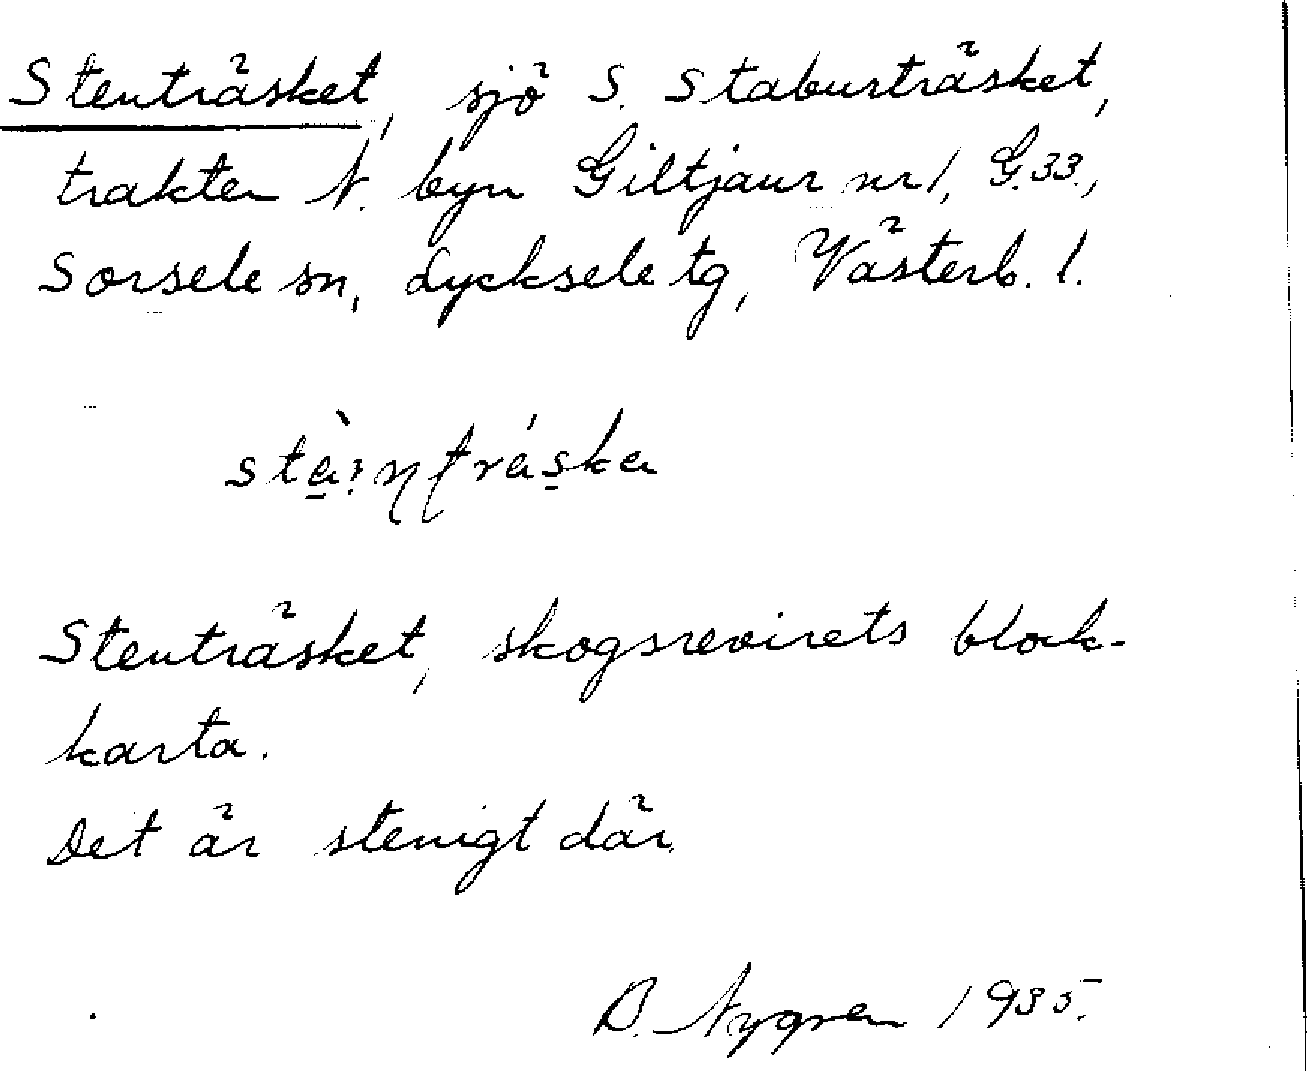 Stenträsket, sjö S. Staburträsket,
trakten N. byn Giltjaur nr 1, G.33.,
Sorsele sn, Lycksele tg, Västerb. l.
Stenträsket, skogsrevirets block-
karta.
Det är stenigt där.
B. Nygren 1935.